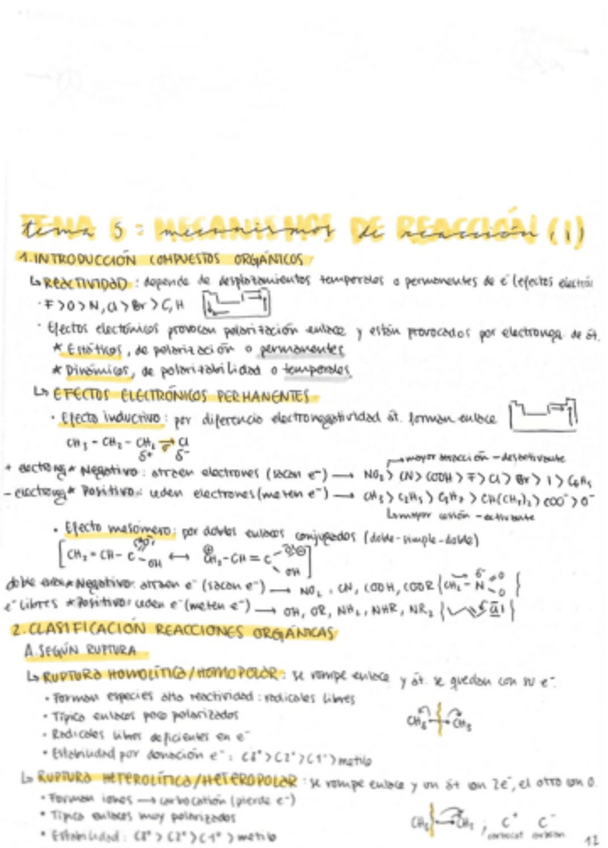 tema 5: mecanismos de reacción (1)
1. INTRODUCCIÓN COMPUESTOS ORGÁNICOS
↳ REACTIVIDAD: depende de desplazamientos temporales o permanentes de e⁻ (efectos electrón
· F > O > N, Cl > Br > C, H
· Efectos electrónicos provocan polarización enlace y están provocados por electroneg. de át.
* Estáticos, de polarización o permanentes
* Dinámicos, de polarizabilidad o temporales
↳ EFECTOS ELECTRÓNICOS PERMANENTES
· Efecto inductivo: por diferencia electronegatividad át. forman enlace
CH₃ - CH₂ - CH₂ → Cl
δ+ δ-
→ mayor atracción - desactivante
+ electrong * Negativo: atraen electrones (sacan e⁻) → NO₂ > CN > COOH > F > Cl > Br > I > C₆H₅
- electrong * Positivo: ceden electrones (meten e⁻) → CH₃ > C₂H₅ > C₃H₇ > CH(CH₃)₂ > COO⁻ > O⁻
↳ mayor cesión - activante
· Efecto mesómero: por dobles enlaces conjugados (doble-simple-doble)
[CH₂ = CH - C - OH ↔ CH₂ - CH = C - OH]
doble enlace * Negativo: atraen e⁻ (sacan e⁻) → NO₂, CN, COOH, COOR
e⁻ libres * Positivo: ceden e⁻ (meten e⁻) → OH, OR, NH₂, NHR, NR₂
2. CLASIFICACIÓN REACCIONES ORGÁNICAS
A. SEGÚN RUPTURA
↳ RUPTURA HOMOLÍTICA/HOMOPOLAR: se rompe enlace y át. se quedan con su e⁻.
· Forman especies alta reactividad: radicales libres
· Típica enlaces poco polarizados
CH₃ CH₃
· Radicales libres deficientes en e⁻
· Estabilidad por donación e⁻: C3° > C2° > C1° > metilo
↳ RUPTURA HETEROLÍTICA/HETEROPOLAR: se rompe enlace y un át con 2e⁻, el otro con 0.
· Forman iones → carbocatión (pierde e⁻)
· Típica enlaces muy polarizados
CH₃ CH₃ ; C⁺ C⁻
· Estabilidad: C3° > C2° > C1° > metilo
12